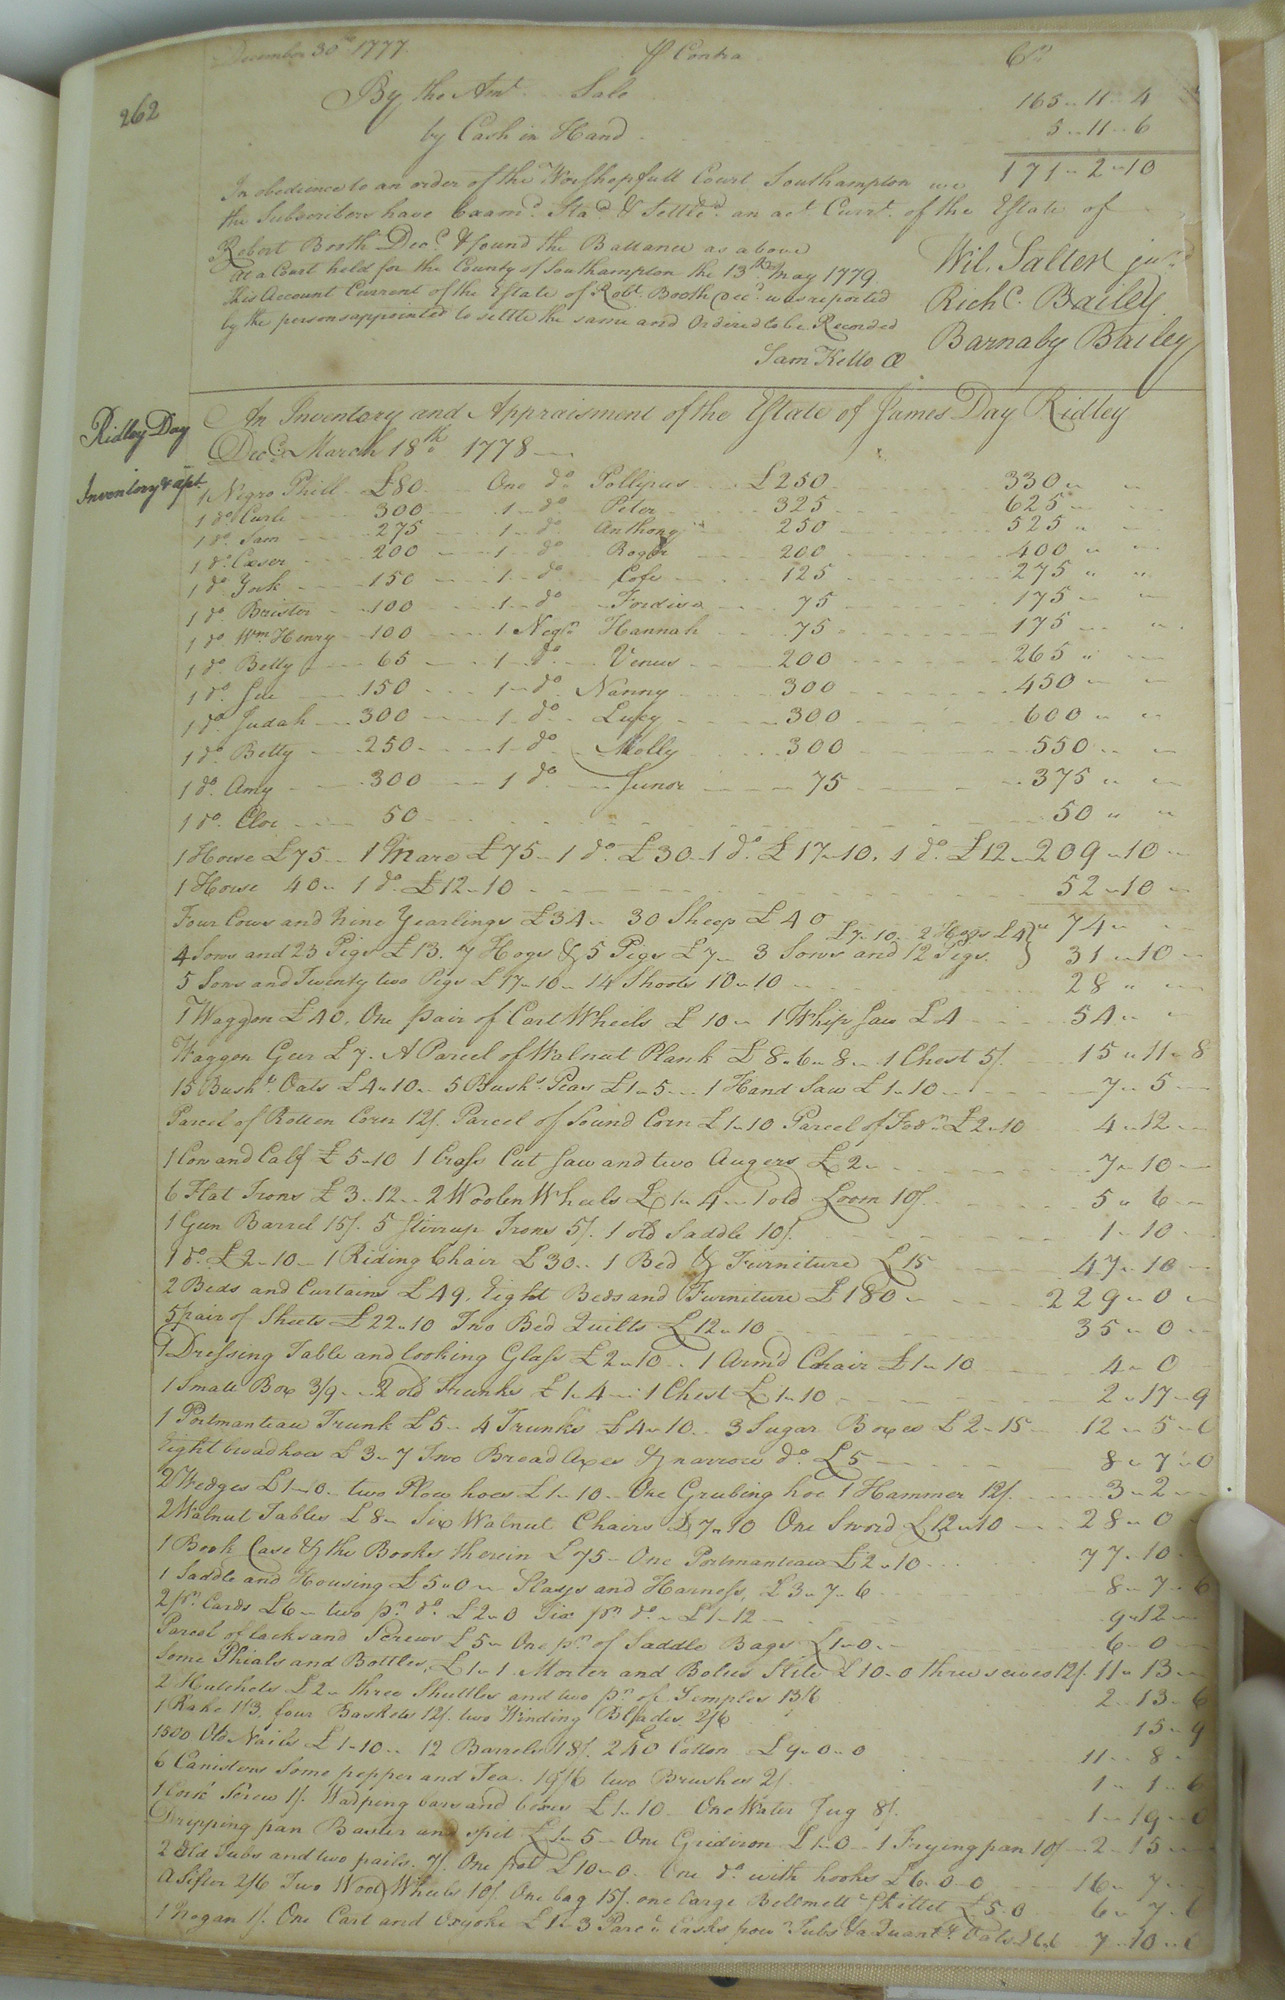 262
December 30th 1777. Pr Contra Cr
By the Amt Sale 165 .. 11 .. 4
by Cash in Hand 5 .. 11 .. 6
171 .. 2 .. 10
In obedience to an order of the Worshopfull Court Southampton we
the Subscribers have Examd. Stad. & Settled. an act Curt. of the Estate of
Robert Booth Decd. & found the Ballance as above
Wil. Salter junr
At a Court held for the County of Southampton the 13th May 1779
this Account Current of the Estate of Robt. Booth Decd. was reported
Richd. Bailey
by the persons appointed to settle the same and Ordered to be Recorded
Barnaby Bailey
Sam Kello
Ridley Day
Inventory & apt.
An Inventory and Appraisment of the Estate of James Day Ridley
Decd. March 18th 1778
1 Negro Phill £80 One do Pollipus £250 330
1 do Curle 300 1 do Peter 325 625
1 do. Sam 275 1 do Anthony 250 525
1 do. Ceser 200 1 do Roger 200 400
1 do. York 150 1 do Cofe 125 275
1 do. Brister 100 1 do 75 175
1 do Wm. Henry 100 1 Negro Hannah 75 175
1 do. Betty 65 1 do. Venus 200 265
1 do. Sue 150 1 do. Nanny 300 450
1 do. Judah 300 1 do. Lucy 300 600
1 do. Betty 250 1 do. Molly 300 550
1 do. Amy 300 1 do Junor 75 375
1 do. Cloe 50 50
1 Horse £75 .. 1 Mare £75 .. 1 do. £30 .. 1 do. £17 .. 10. 1 do. £12 .. 209 .. 10
1 Horse 40 .. 1 do. £12 .. 10 52 .. 10
Four Cows and Nine Yearlings £34 .. 30 Sheep £40 74
£7 .. 10 .. 2 Hogs £4
4 Sows and 23 Pigs £13. 7 Hogs & 5 Pigs £7 .. 3 Sows and 12 Pigs. 31 .. 10
5 Sows and Twenty two Pigs £17 .. 10 .. 14 Shoots 10 .. 10 28
1 Waggon £40. One pair of Cart Wheels £10 .. 1 Whip Saw £4 54
Waggon Geer £7. A Parcel of Walnut Plank £8 .. 6 .. 8 .. 1 Chest 5/. 15 .. 11 .. 8
15 Bushs. Oats £4 .. 10 .. 5 Bushs. Peas £1 .. 5 .. 1 Hand Saw £1 .. 10 7 .. 5
Parcel of Rotten Corn 12/. Parcel of Sound Corn £1 .. 10 Parcel of Fodr. £2 .. 10 4 .. 12
1 Cow and Calf £5 .. 10 1 Cross Cut Saw and two Augers £2 7 .. 10
6 Flat Irons £3 .. 12 .. 2 Woolen Wheels £1 .. 4 .. 1 old Loom 10/. 5 .. 6
1 Gun Barrel 15/. 5 Stirrup Irons 5/. 1 old Saddle 10/. 1 .. 10
1 do. £2 .. 10 .. 1 Riding Chair £30 .. 1 Bed & Furniture £15 47 .. 10
2 Beds and Curtains £49. Eight Beds and Furniture £180 229 .. 0
5 pair of Sheets £22 .. 10 Two Bed Quilts £12 .. 10 35 .. 0
1 Dressing Table and looking Glass £2 .. 10 .. 1 Arm'd Chair £1 .. 10 4 .. 0
1 Small Box 3/9 .. 2 old Trunks £1 .. 4 .. 1 Chest £1 .. 10 2 .. 17 .. 9
1 Portmanteau Trunk £5 .. 4 Trunks £4 .. 10 .. 3 Sugar Boxes £2 .. 15 12 .. 5 .. 0
Eight broad hoes £3 .. 7 Two Broad Axes & narrow do. £5 8 .. 7 .. 0
2 Wedges £1 .. 0 .. two Plow hoes £1 .. 10 .. One Grubing hoe 1 Hammer 12/. 3 .. 2
2 Walnut Tables £8 .. Six Walnut Chairs £7 .. 10 One Sword £12 .. 10 28 .. 0
1 Book Case & the Books therein £75 .. One Portmanteau £2 .. 10 77 .. 10
1 Saddle and Housing £5 .. 0 .. Slays and Harness, £3 .. 7 .. 6 8 .. 7 .. 6
2 pr. Cards £6 .. two pr. do. £2 .. 0 Six pr do. £1 .. 12 9 .. 12
Parcel of locks and Screws £5 .. One pr. of Saddle Bags £1 .. 0 6 .. 0
Some Phials and Bottles, £1 .. 1. Morter and Bolus Stile £10 .. 0 three seives 12/. 11 .. 13
2 Hatchets £2 .. three Shuttles and two pr. of Temples 13/6 2 .. 13 .. 6
1 Rake 1/3. four Baskets 12/. two Winding Blades 2/6 15 .. 9
1500 Old Nails £1 .. 10 .. 12 Barrels 18/. 240 Cotton £9 .. 0 .. 0 11 .. 8
6 Canisters Some pepper and Tea. 19/6 two Brushes 2/. 1 .. 1 .. 6
1 Cork Screw 1/. Warping bars and boxes £1 .. 10 .. One Water Jug 8/. 1 .. 19 .. 0
Dripping pan Baster and spit £1 .. 5 .. One Gridiron £1 .. 0 .. 1 Frying pan 10/ 2 .. 15
2 Old Tubs and two pails. 7/. One pot £10 .. 0. One do. with hooks £6 .. 0 .. 0 16 .. 7
A Sifter 2/6 Two Wool Wheels 10/. One bag 15/. one large Bellmettl Skillet £5 .. 0 6 .. 7 .. 6
1 Nogan 1/. One Cart and Oxyoke £1 .. 3 Parcl. Casks powr. Tubs & a Quanty. Oats 7 .. 10 .. 6